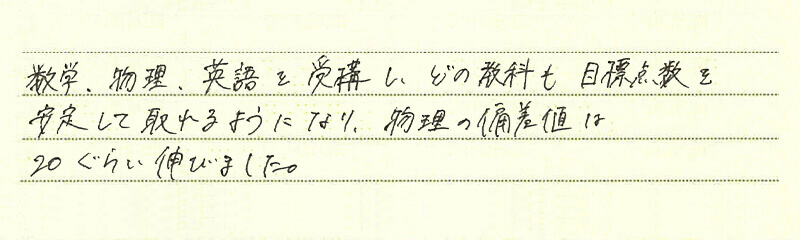 数学、物理、英語を受講し、どの教科も目標点数を
安定して取れるようになり、物理の偏差値は
20ぐらい伸びました。